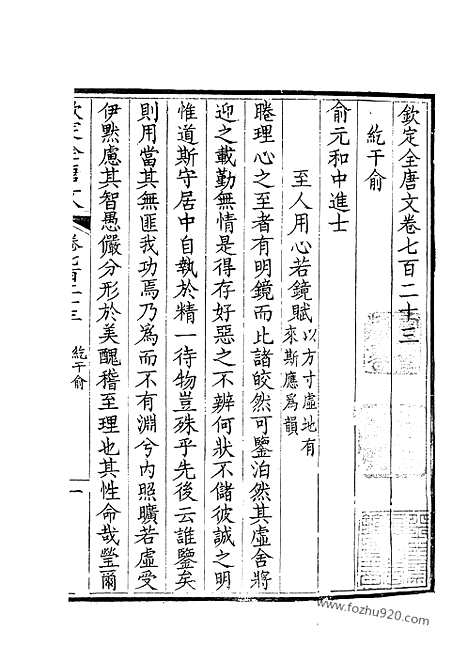 欽定全唐文卷七百二十三
紇干俞
俞元和中進士
至人用心若鏡賦以方寸虛地有
來斯應爲韻
睠理心之至者有明鏡而比諸皎然可鑒泊然其虛舍將
迎之載勤無情是得存好惡之不辨何狀不儲彼誠之明
惟道斯守居中自執於精一待物豈殊乎先後云誰鑒矣
則用當其無匪我功焉乃爲而不有淵兮內照曠若虛受
伊默慮其智愚儼分形於美醜稽至理也其性命哉瑩爾
欽定全唐文
卷七百二十三
紇干俞
一
www.fozhu920.com